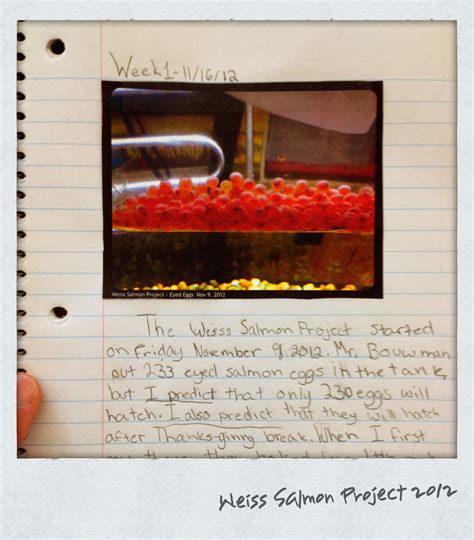 Week1-11/16/12
Weiss Salmon Project - Eyed Eggs Nov 9, 2012
The Weiss Salmon Project started
on Friday November 9, 2012. Mr. Bouwman
put 233 eyed salmon eggs in the tank,
but I predict that only 230 eggs will
hatch. I also predict that they will hatch
after Thanks-giving break. When I first
Weiss Salmon Project 2012